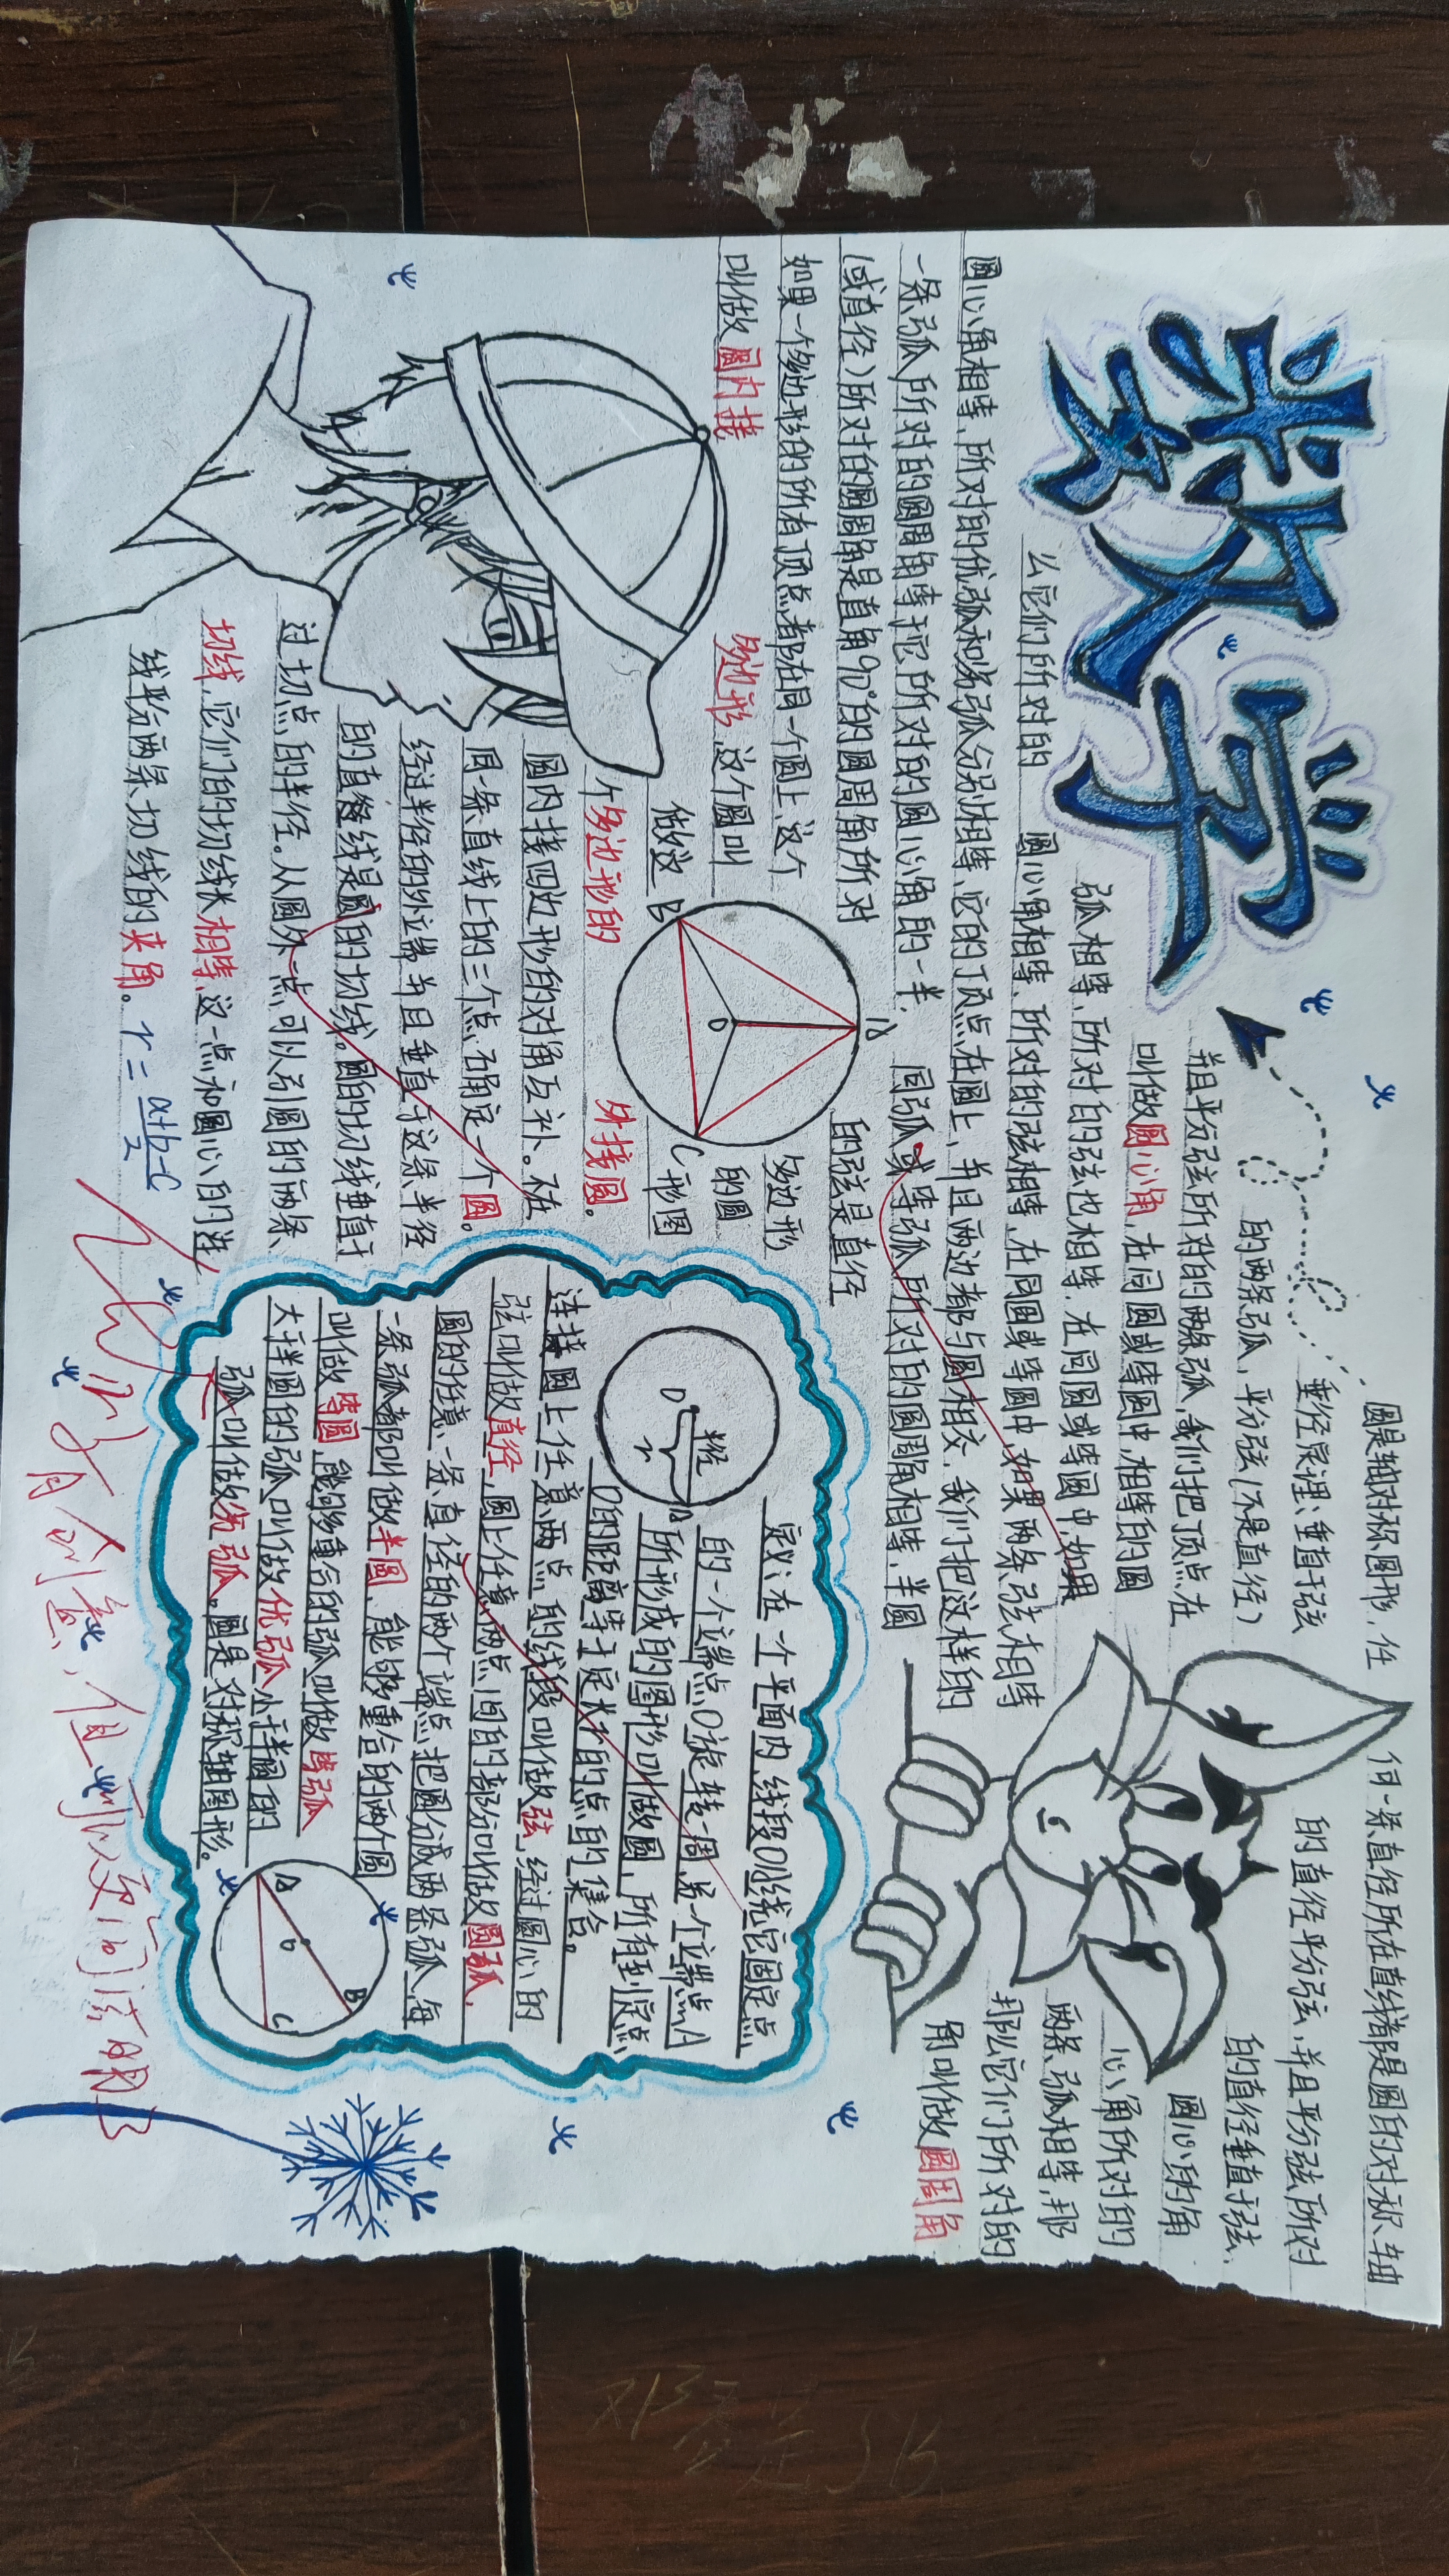 数学
圆是轴对称图形，任何一条直径所在直线都是圆的对称轴
垂径定理：垂直于弦的直径平分弦，并且平分弦所对
的两条弧，平分弦（不是直径）的直径垂直于弦，
并且平分弦所对的两条弧，我们把顶点在圆心的角
叫做圆心角，在同圆或等圆中，相等的圆心角所对的
弧相等，所对的弦也相等，在同圆或等圆中，如果两条弧相等，那
么它们所对的圆心角相等，所对的弦相等，在同圆或等圆中，如果两条弦相等那么它们所对的
圆心角相等，所对的优弧和劣弧分别相等，它的顶点在圆上，并且两边都与圆相交，我们把这样的角叫做圆周角
一条弧所对的圆周角等于它所对的圆心角的一半，同弧或等弧所对的圆周角相等，半圆
（或直径）所对的圆周角是直角90°的圆周角所对的弦是直径
如果一个多边形的所有顶点都在同一个圆上，这个多边形
叫做圆内接多边形，这个圆叫
做这个多边形的外接圆。
A
B
C
O
圆内接四边形的对角互补。不在
同一条直线上的三个点确定一个圆。
经过半径的外端并且垂直于这条半径
的直线是圆的切线。圆的切线垂直于
过切点的半径。从圆外一点可以引圆的两条
切线，它们的切线长相等，这一点和圆心的连
线平分两条切线的夹角。r=(a+b-c)/2
定义：在一个平面内，线段OA绕它固定点
的一个端点O旋转一周，另一个端点A
所形成的图形叫做圆，所有到定点
O的距离等于定长r的点的集合。
O
半径
r
A
连接圆上任意两点的线段叫做弦，经过圆心的
弦叫做直径，圆上任意两点间的部分叫做圆弧，
圆的任意一条直径的两个端点把圆分成两条弧，每
一条弧都叫做半圆，能够重合的两个圆
叫做等圆，能够重合的弧叫做等弧
大于半圆的弧叫做优弧 小于半圆的
弧叫做劣弧。圆是对称轴图形。
A
O
B
C
有创意，但